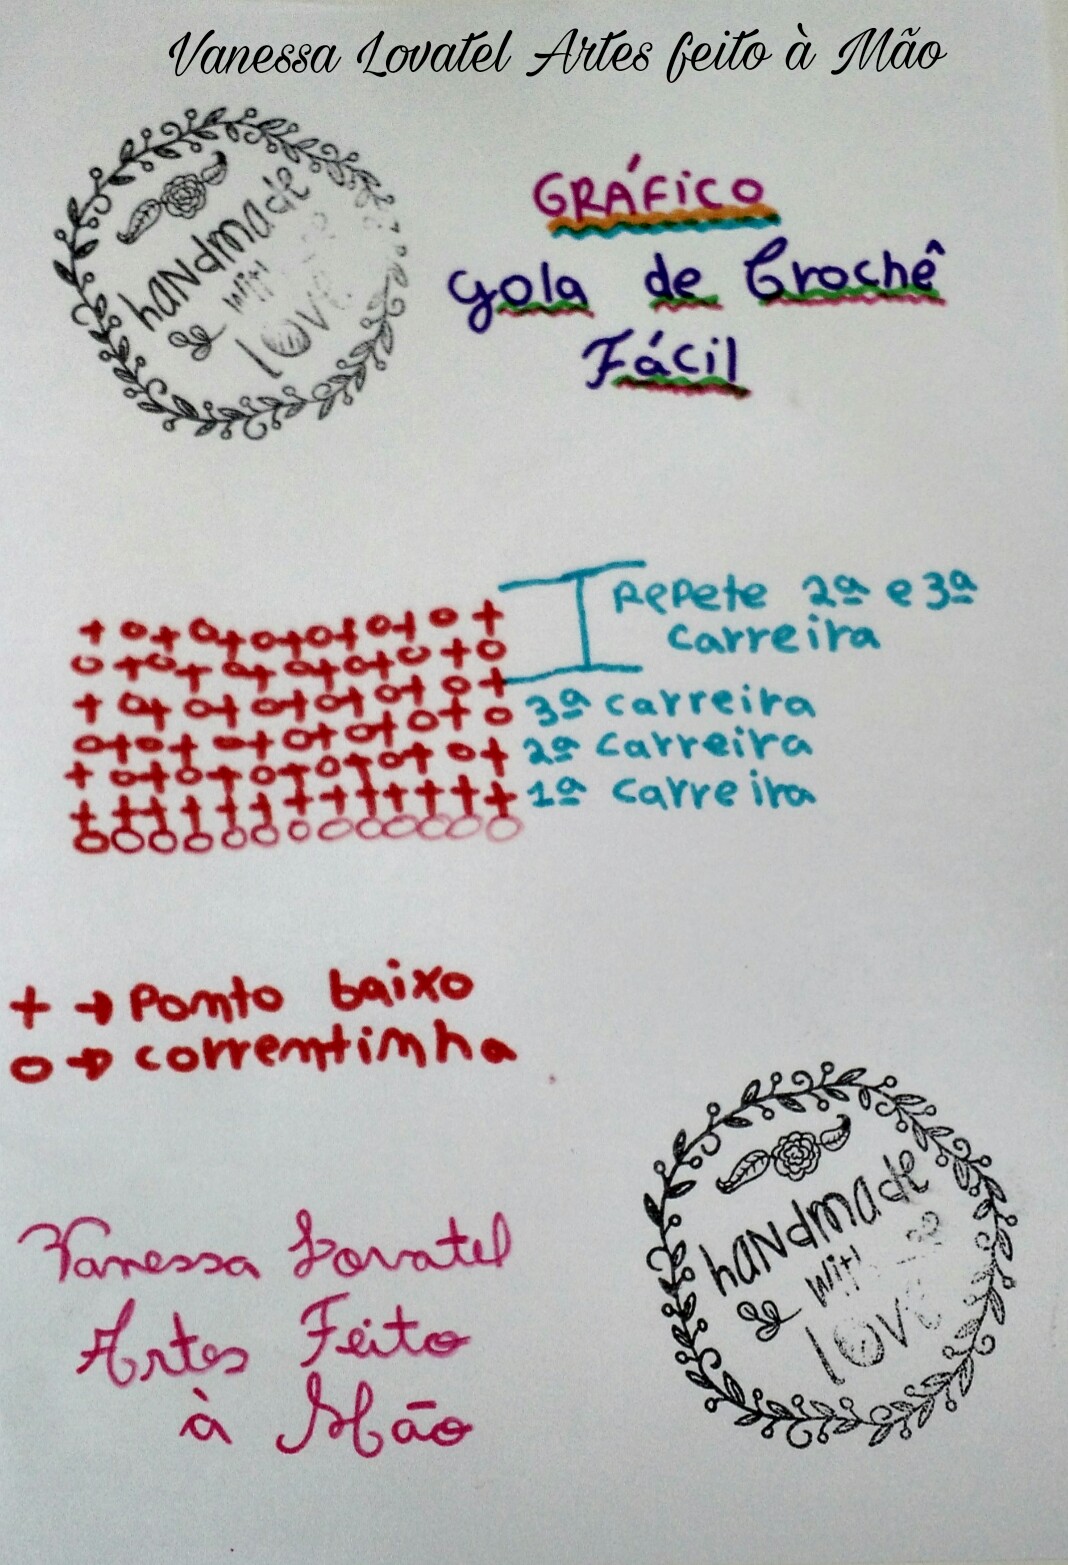 Vanessa Lovatel Artes feito à Mão
handmade
with
love
GRÁFICO
Gola de Crochê
Fácil
+ o + o + o + o + o + o +
Repete 2ª e 3ª
carreira
3ª carreira
2ª carreira
1ª carreira
+ → Ponto baixo
o → correntinha
handmade
with
love
Vanessa Lovatel
Artes Feito
à Mão